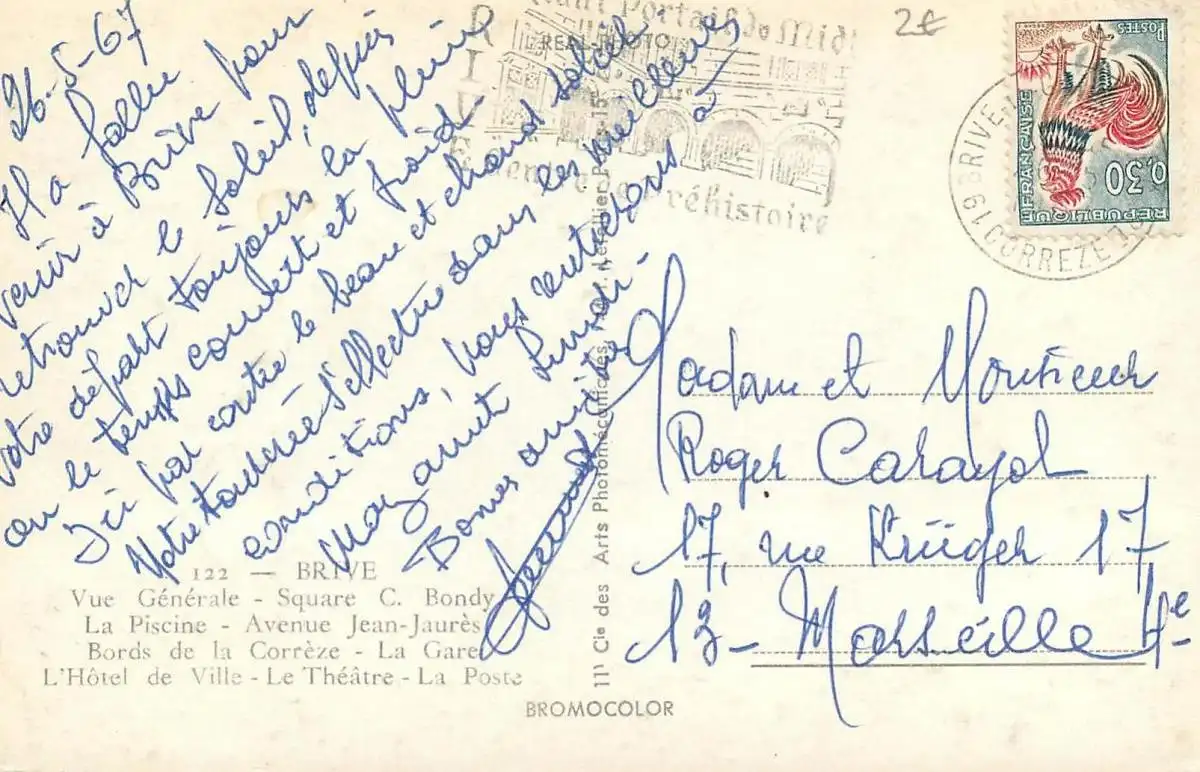 26-5-67
Il a fallu
venir à Brive pour
retrouver le soleil, depuis
notre départ toujours la pluie
ou le temps couvert et froid
Ici par contre le beau et chaud soleil
Notre tournée s'effectue dans les meilleures
conditions, nous rentrerons à
Mazamet lundi.
Bonnes amitiés
122 — BRIVE
Vue Générale - Square C. Bondy
La Piscine - Avenue Jean-Jaurès
Bords de la Corrèze - La Gare
L'Hôtel de Ville - Le Théâtre - La Poste
BROMOCOLOR
REAL-PHOTO
Cie des Arts Photomécaniques
BRIVE
Portail du Midi
Préhistoire
2€
POSTES
0,30
REPUBLIQUE FRANÇAISE
19 BRIVE
CORREZE
Madame et Monsieur
Roger Carayol
17, rue Krüger 17
13 - Marseille 4e